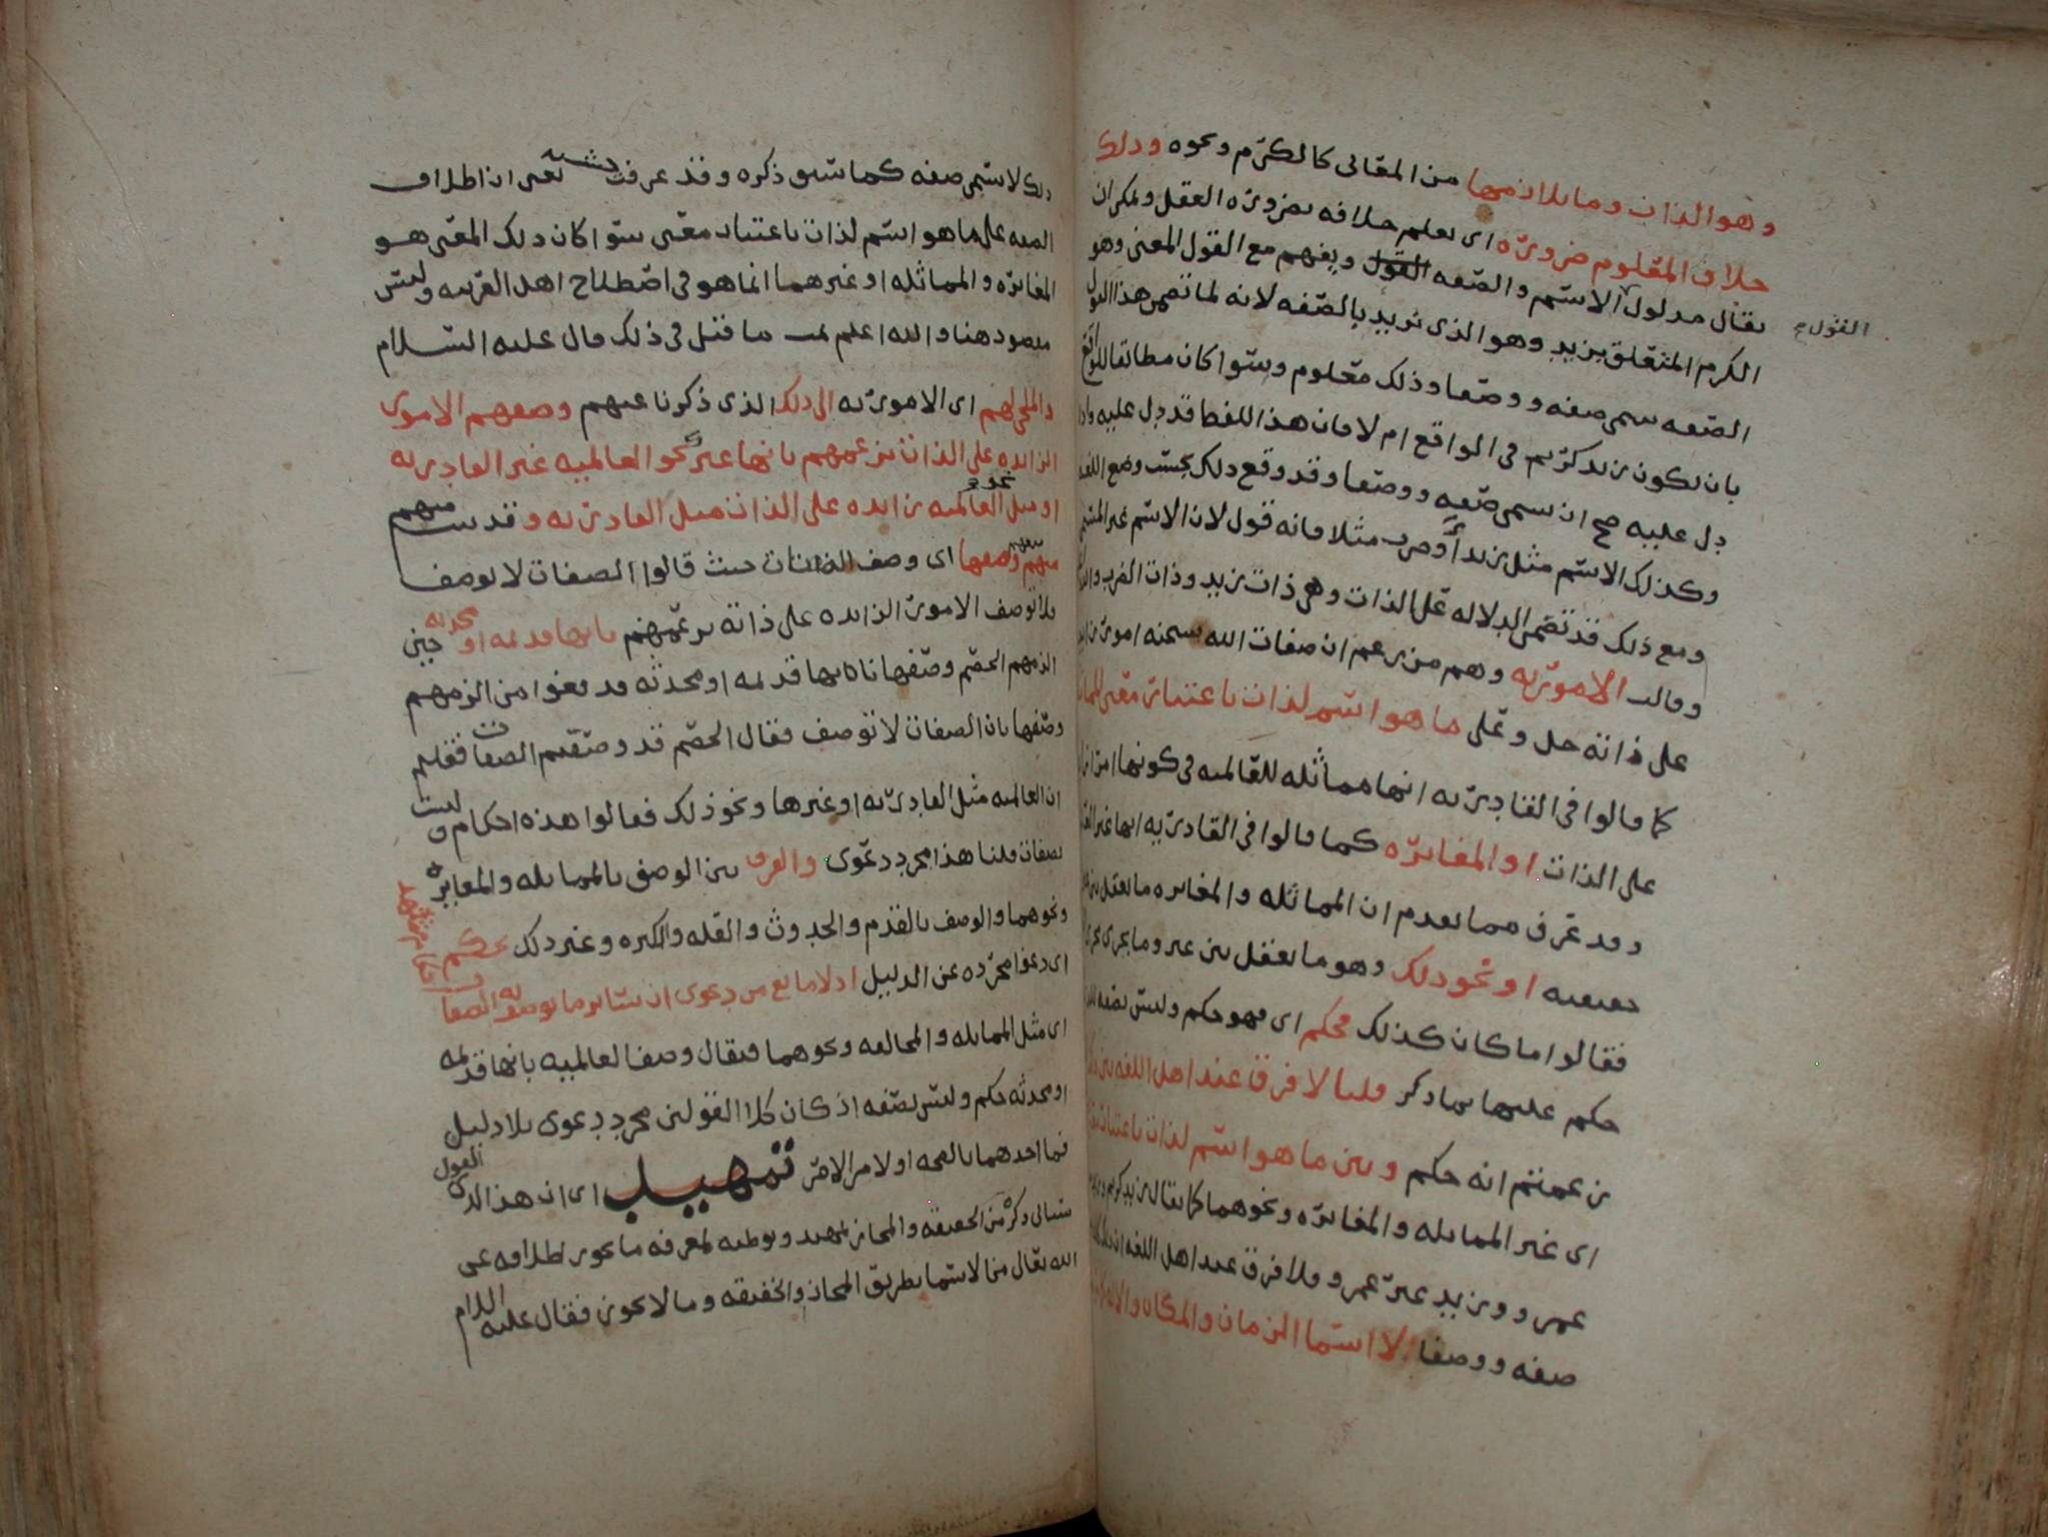 وهو الذات وما يلازمها من المعاني كالكرم ونحوه وذلك
خلاف المعلوم ضرورة اي يعلم خلافه بضرورة العقل ويمكن ان
يقال مدلول الاسم والصفه القول ويفهم مع القول المعنى وهو
القول
الكرم المتعلق بزيد وهو الذي نريد بالصفه لانه لما تضمن هذا القول
الصفه سمي صفه ووصفا وذلك معلوم وسوا كان مطابقا للواقع
بان يكون زيد كريم في الواقع ام لا فان هذا اللفظ قد دل عليه واذا
دل عليه صح ان يسمى صفه ووصفا وقد وقع ذلك بحسب وضع اللغه
وكذلك الاسم مثل زيد او ضرب مثلا فانه قول لان الاسم غير المسمى
ومع ذلك قد تضمن الدلاله على الذات وهي ذات زيد وذات الضرب
وقالت الامورية وهم من زعم ان صفات الله سبحنه امور
على ذاته جل وعلى ما هو اسم لذات باعتبار معنى
كما قالوا في القادرية انها مماثله للعالميه في كونها امر
على الذات او المغايرة كما قالوا في القادرية انها غير
وقد عرف مما تقدم ان المماثله والمغايره ما يعقل بين
حقيقيه او نحو ذلك وهو ما يعقل بين غير وما يجري مجرى
فقالوا ما كان كذلك فحكم اي فهو حكم وليس بصفه
حكم عليها بما ذكر قلنا لا فرق عند اهل اللغه بين
زعمتم انه حكم وبين ما هو اسم لذات باعتبار
اي غير المماثله والمغايرة ونحوهما كما يقال زيد كريم
عمرو وزيد غير عمرو فلا فرق عند اهل اللغه ان
صفه ووصفا لا اسما الزمان والمكان والاله
ذلك لا يسمى صفه كما سبق ذكره وقد عرفت يعني ان اطلاق
الصفه على ما هو اسم لذات باعتبار معنى سوا كان ذلك المعنى هو
المغايرة والمماثله او غيرهما انما هو في اصطلاح اهل العربيه وليس
مقصود هنا والله اعلم ما قيل في ذلك قال عليه السلام
والملجي لهم اي الامورية الى ذلك الذي ذكرنا عنهم وصفهم الامور
الزايده على الذات بزعمهم بانها غير نحو العالميه غير القادرية
او مثل العالميه زايده على الذات مثل القادرية وقد منهم
منهم وصفها اي وصف الصفات حيث قالوا الصفات لا توصف
فلا توصف الامور الزايده على ذاته بزعمهم بانها قديمه او محدثه حين
الزمهم الخصم وصفها بانها قديمه او محدثه قد فعنوا من الزمهم
وصفها بان الصفات لا توصف فقال الخصم قد وصفتم الصفات فقلتم
ان العالميه مثل القادرية او غيرها ونحو ذلك فقالوا هذه احكام وليست
بصفات قلنا هذا مجرد دعوى والفرق بين الوصف بالمماثله والمغايرة
ونحوهما والوصف بالقدم والحدوث والقله والكثره وغير ذلك تحكم
اي دعوا مجرده عن الدليل اذ لا مانع من دعوى ان ساير ما توصف به الصفات
اي مثل المماثله والمخالفه ونحوهما فيقال وصف العالميه بانها قديمه
او محدثه حكم وليس بصفه اذ كان كلا القولين مجرد دعوى بلا دليل
فما احدهما بالصحه اولا من الاخر تمهيد اي ان هذا القول الذي
سياتي ذكره من الحقيقه والمجاز تمهيد وتوطيه لمعرفه ما يجوز اطلاقه على
الله تعالى من الاسما بطريق المجاز والحقيقه وما لا يجوز فقال عليه السلام